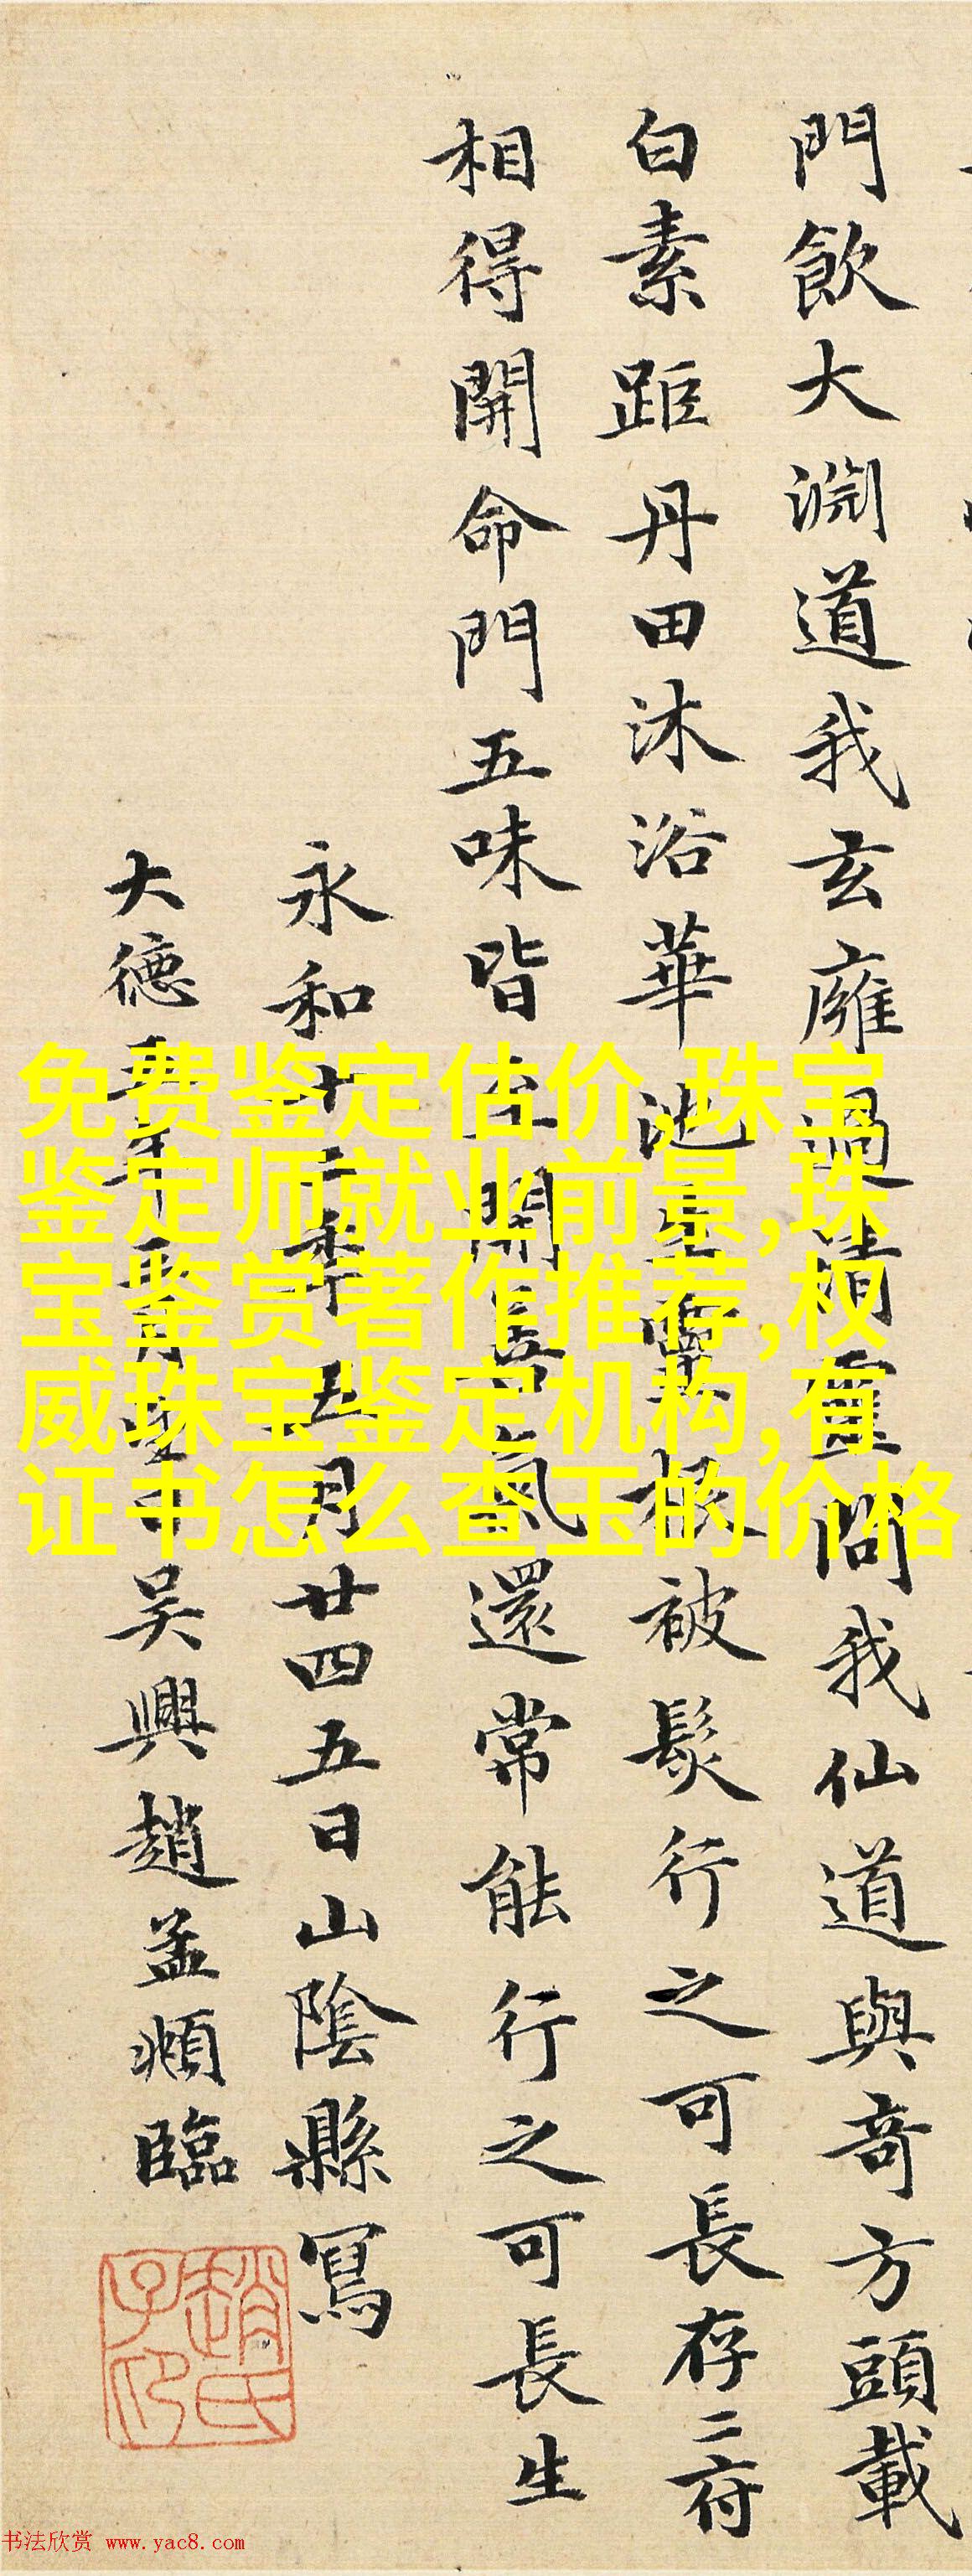 門飲大淵道我玄廱過清靈問我仙道與竒方頭載
白素距丹田沐浴華池生靈根被髮行之可長存二府
相得開命門五味皆至開善氣還常能行之可長生
永和十二年五月廿四五日山陰縣寫
大德五年月日吴興趙孟頫臨
趙氏子昂
免费鉴定估价,珠宝
鉴定师就业前景,珠
宝鉴赏著作推荐,权
威珠宝鉴定机构,有
证书怎么查玉的价格
书法欣赏 www.yac8.com